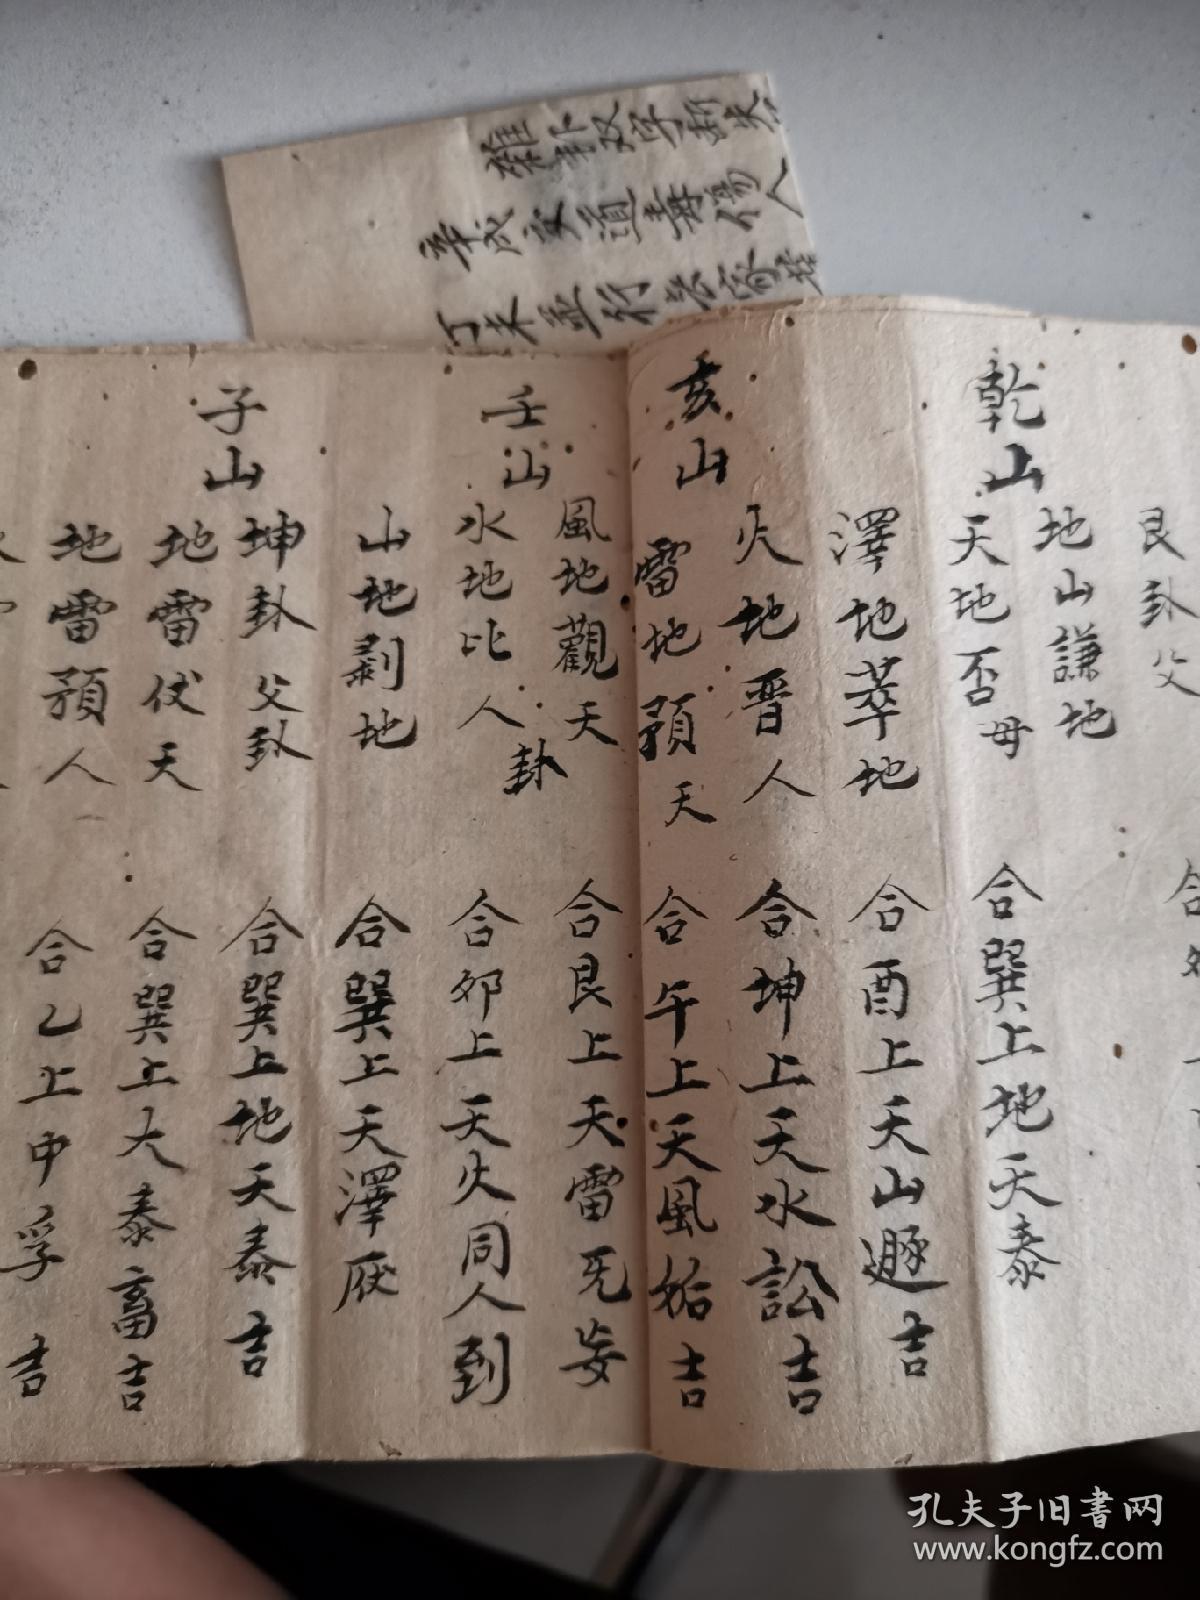 雜卦双字新
辛成安道毒傷人
丁未並行去家
艮卦父
地山謙地
乾山
天地否母
合巽上地天泰
澤地萃地
合酉上天山遯吉
火地晋人
合坤上天水訟吉
亥山
雷地預天
合午上天風姤吉
風地觀天
合艮上天雷旡妄
壬山
水地比人
卦
合卯上天火同人到
山地剥地
合巽上天澤履
子山
坤卦父卦
合巽上地天泰吉
地雷伏天
合巽上大泰畜吉
地雷預人
合乙上中孚吉
孔夫子旧書网
www.kongfz.com